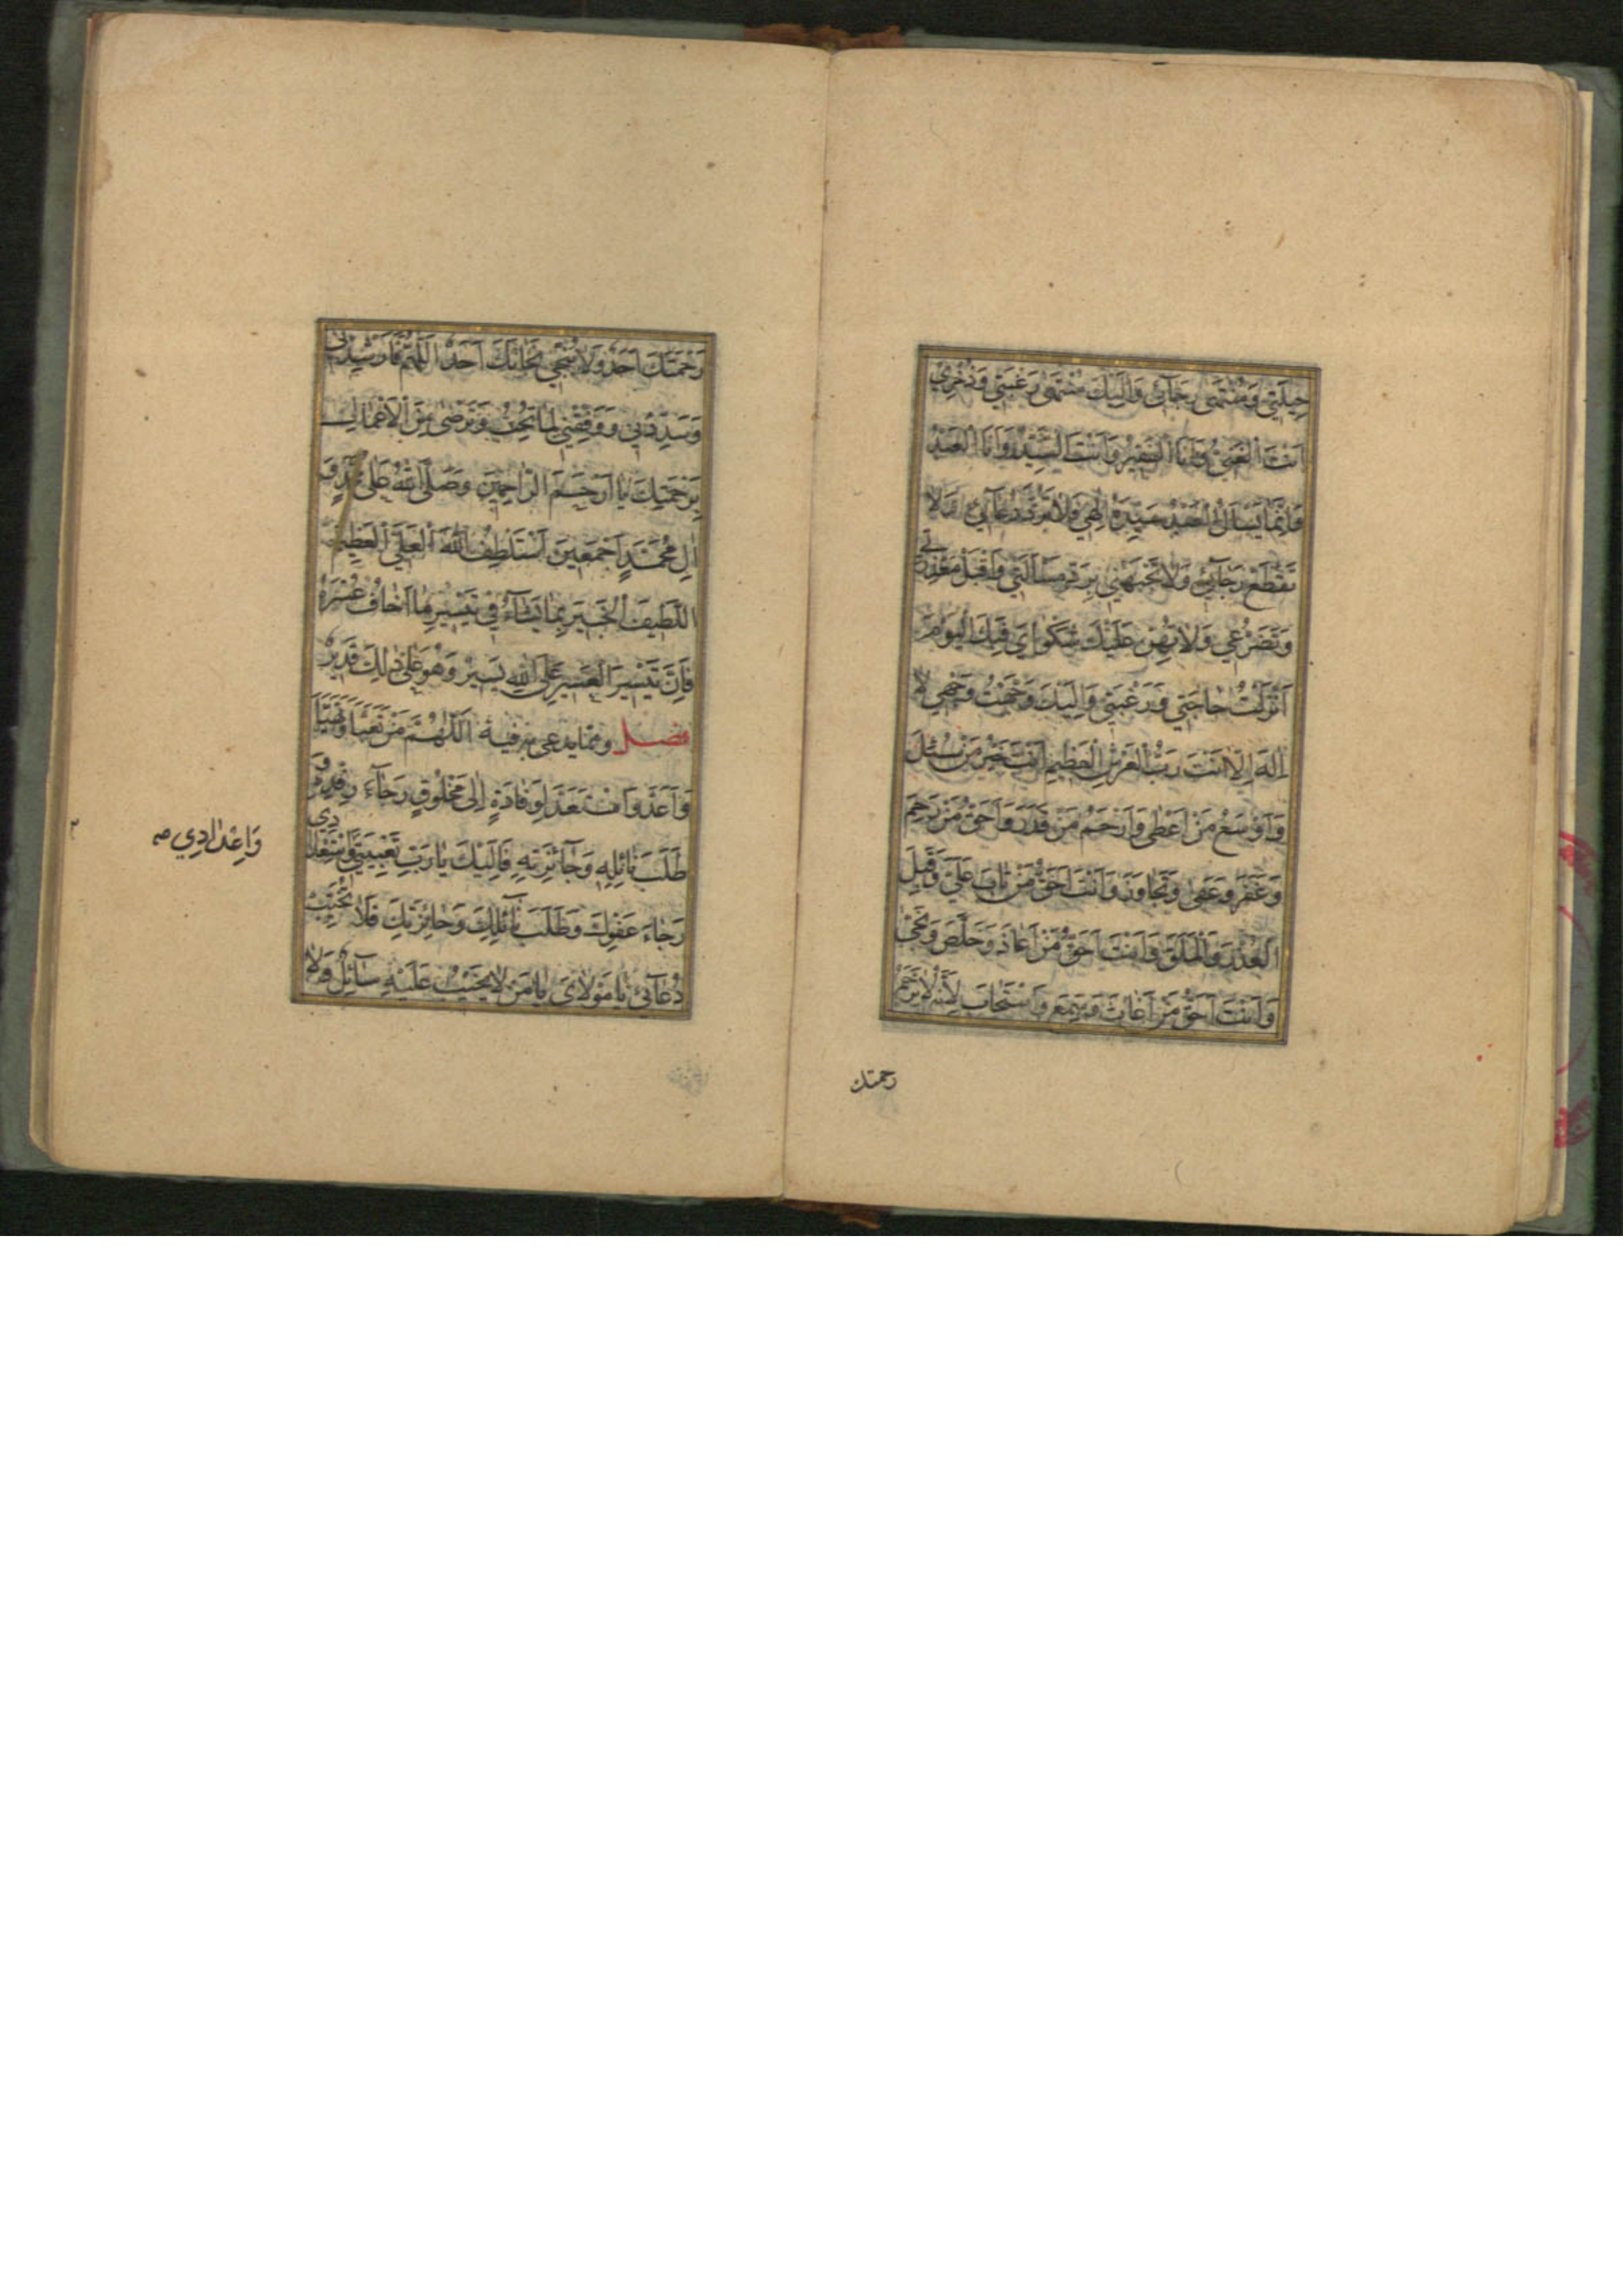 حِيلَتِي وَمُنْتَهىٰ رَجَآئِي وَاِلَيْكَ مُنْتَهىٰ رَغْبَتِي وَذُخْرِي
اَنْتَ الْغَنِيُّ وَاَنَا الْفَقِيرُ وَاَنْتَ السَّيِّدُ وَاَنَا الْعَبْدُ
وَاِنَّمَا يَسْاَلُ الْعَبْدُ سَيِّدَهُ اِلٰهِي فَلَا تَرُدَّ دُعَآئِي وَلَا
تَقْطَعْ رَجَآئِي وَلَا تَجْبَهْنِي بِرَدِّ مَسْاَلَتِي وَاقْبَلْ مَعْذِرَتِي
وَتَضَرُّعِي وَلَا يَهُنْ عَلَيْكَ شَكْوَايَ فَبِكَ الْيَوْمَ
اَنْزَلْتُ حَاجَتِي وَرَغْبَتِي وَاِلَيْكَ وَجَّهْتُ وَجْهِي لَا
اِلٰهَ اِلَّا اَنْتَ رَبُّ الْعَرْشِ الْعَظِيمِ اَنْتَ خَيْرُ مَنْ سُئِلَ
وَاَوْسَعُ مَنْ اَعْطىٰ وَاَرْحَمُ مَنْ قَدَرَ وَاَحَقُّ مَنْ رَحِمَ
وَغَفَرَ وَعَفىٰ وَتَجَاوَزَ وَاَنْتَ اَحَقُّ مَنْ تَابَ عَلَيَّ وَقَبِلَ
الْعُذْرَ وَالْمَلَقَ وَاَنْتَ اَحَقُّ مَنْ اَعَاذَ وَخَلَّصَ وَنَجّىٰ
وَاَنْتَ اَحَقُّ مَنْ اَغَاثَ وَسَمِعَ وَاسْتَجَابَ لِاَنَّهُ لَا يَرْحَمُ
رحمتك
رَحْمَتَكَ اَحَدٌ وَلَا يُنْجِي نَجَاتَكَ اَحَدٌ اَللّٰهُمَّ فَاَرْشِدْنِي
وَسَدِّدْنِي وَوَفِّقْنِي لِمَا تُحِبُّ وَتَرْضىٰ مِنَ الْاَعْمَالِ
بِرَحْمَتِكَ يَا اَرْحَمَ الرَّاحِمِينَ وَصَلَّى اللّٰهُ عَلىٰ مُحَمَّدٍ وَ
اٰلِ مُحَمَّدٍ اَجْمَعِينَ اَسْتَلْطِفُ اللّٰهَ الْعَلِيَّ الْعَظِيمَ
اللَّطِيفَ الْخَبِيرَ بِمَا يَشَآءُ فِي تَيْسِيرِ مَا اَخَافُ عُسْرَهُ
فَاِنَّ تَيْسِيرَ الْعَسِيرِ عَلَى اللّٰهِ يَسِيرٌ وَهُوَ عَلىٰ ذٰلِكَ قَدِيرٌ
فصل وممّا يدعى به فيه اَللّٰهُمَّ مَنْ تَعَبَّاَ وَتَهَيَّاَ
وَاَعَدَّ وَاسْتَعَدَّ لِوِفَادَةٍ اِلىٰ مَخْلُوقٍ رَجَآءَ رِفْدِهِ وَ
طَلَبَ نَائِلِهِ وَجَآئِزَتِهِ فَاِلَيْكَ يَا رَبِّ تَعْبِيَتِي وَاسْتِعْدَادِي
وَاِعْدَادِي صه
رَجَاءَ عَفْوِكَ وَطَلَبَ نَآئِلِكَ وَجَائِزَتِكَ فَلَا تُخَيِّبْ
دُعَآئِي يَا مَوْلَايَ يَا مَنْ لَا يَخِيبُ عَلَيْهِ سَآئِلٌ وَلَا